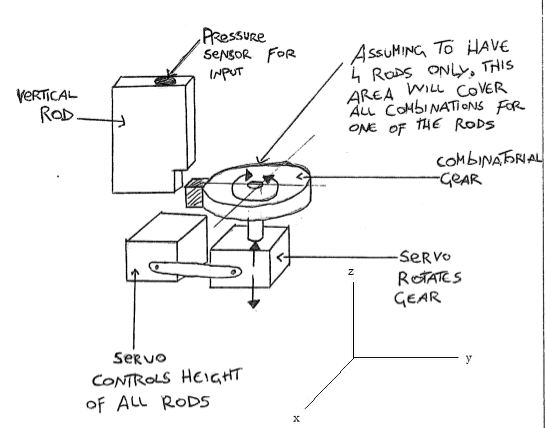 PRESSURE
SENSOR FOR
INPUT
ASSUMING TO HAVE
4 RODS ONLY, THIS
AREA WILL COVER
ALL COMBINATIONS FOR
ONE OF THE RODS
VERTICAL
ROD
COMBINATORIAL
GEAR
SERVO
ROTATES
GEAR
z
y
x
SERVO
CONTROLS HEIGHT
OF ALL RODS